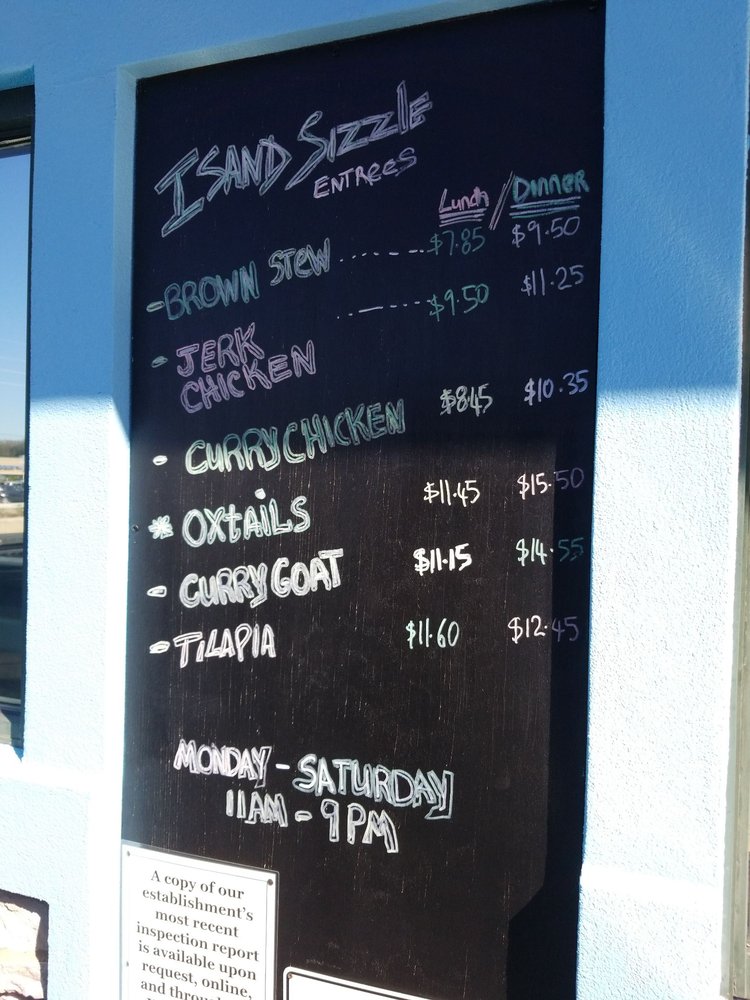 ISAND SIZZLE
ENTREES
Lunch / DINNER
- BROWN STEW ........ $7.85 $9.50
- JERK CHICKEN ........ $9.50 $11.25
- CURRY CHICKEN $8.45 $10.35
* OXTAILS $11.45 $15.50
- CURRY GOAT $11.15 $14.55
- TILAPIA $11.60 $12.45
MONDAY - SATURDAY
11AM - 9PM
A copy of our
establishment's
most recent
inspection report
is available upon
request, online,
and